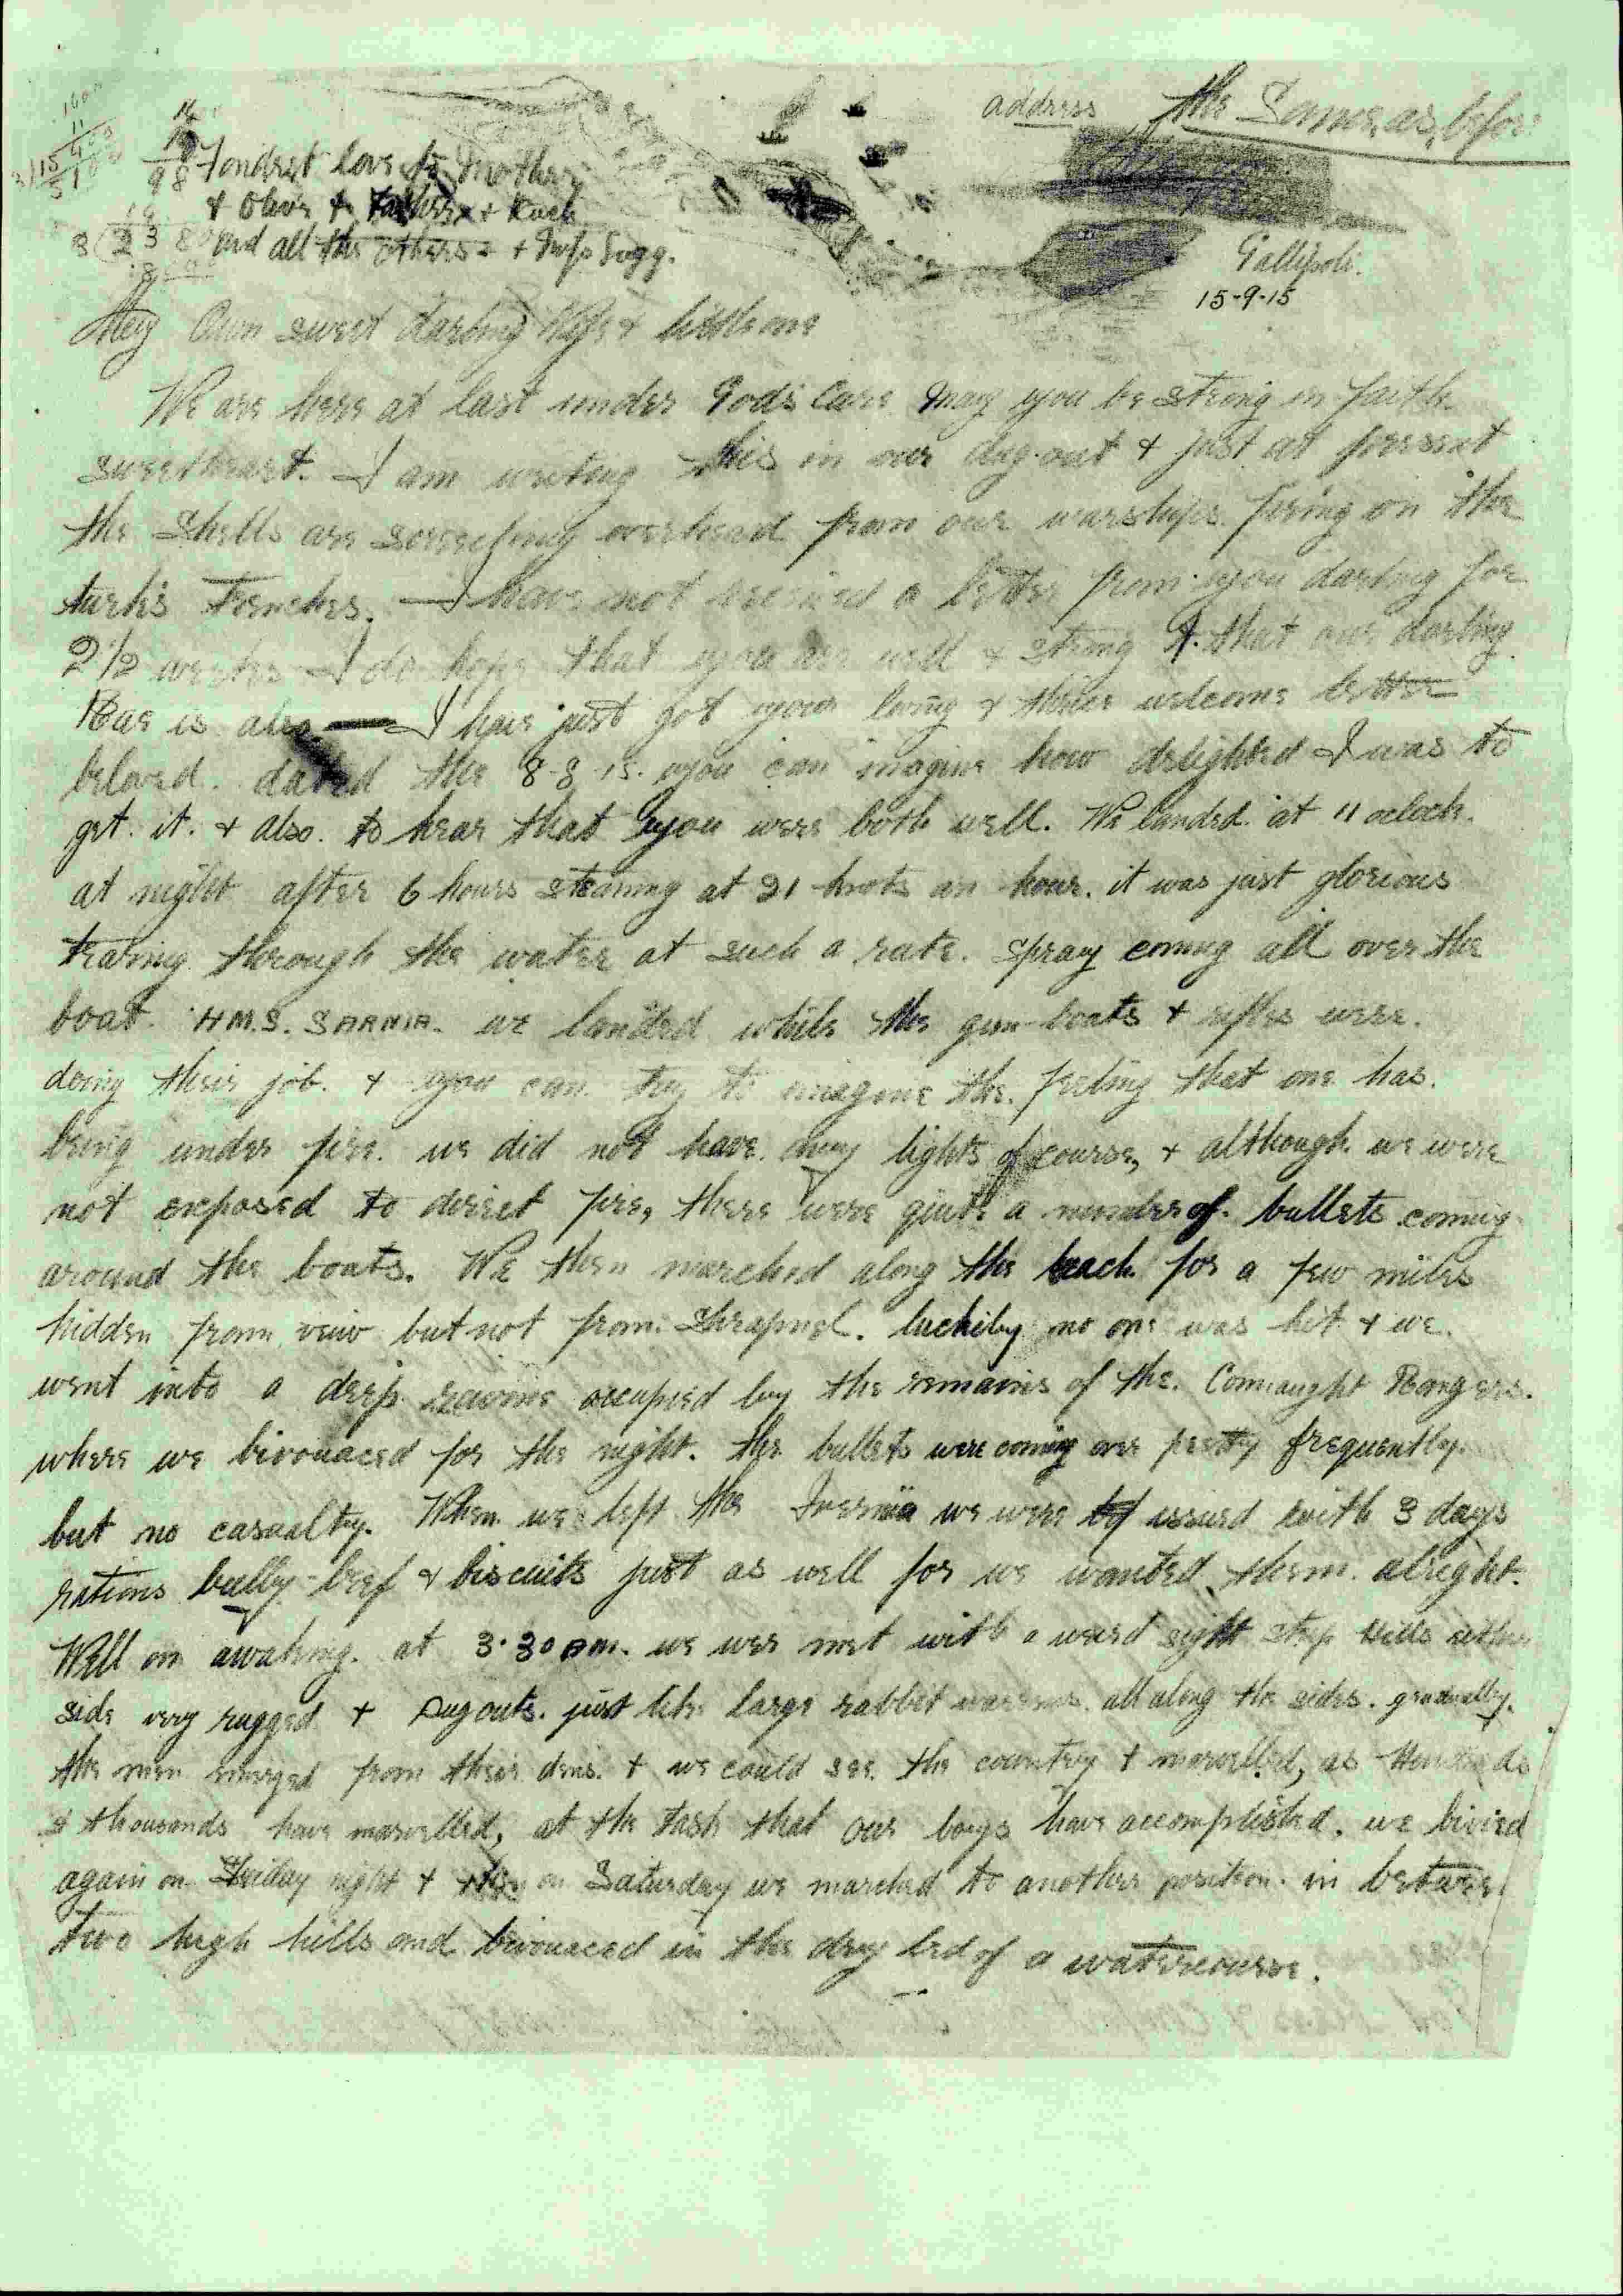 address the Same as before
Fondest love to Mother
& Olive &
and all the others
Gallipoli.
15-9-15
My Own sweet darling Wife & little one
We are here at last under God's Care may you be strong in faith
sweetheart. I am writing this in our dug-out & just at present
the shells are screeching overhead from our warships firing on the
turk's Trenches. — I have not received a letter from you darling for
2 1/2 weeks I do hope that you are well & strong & that our darling
Rae is also — I have just got your loving & thrice welcome letter
beloved. dated the 8-8-15. you can imagine how delighted I was to
get. it. & also. to hear that you were both well. We landed. at 11 oclock.
at night after 6 hours steaming at 21 knots an hour. it was just glorious
tearing through the water at such a rate. spray coming all over the
boat. H.M.S. SARNIA. we landed while the gun-boats & rifles were.
doing their job. & you can. try to imagine the. feeling that one has.
being under fire. we did not have. any lights of course, & although we were
not exposed to direct fire, there were quite a number of. bullets coming
around the boats. We then marched along the beach for a few miles
hidden from veiw but not from. Shrapnel. luckily no one was hit & we.
went into a deep ravine occupied by the remains of the. Connaught Rangers.
where we bivouaced for the night. the bullets were coming over pretty frequently.
but no casualty. When we left the Ivernia we were issued with 3 days
rations bully-beef & biscuits just as well for we wanted them. alright.
Well on awaking. at 3.30 AM. we were met with a weird sight steep hills either
side very rugged & Dugouts. just like large rabbit warrens. all along the sides. gradually.
the men emerged from their dens. & we could see. the country & marvelled, as Hundreds
& thousands have marvelled, at the task that our boys have accomplished. we bivied
again on Friday night & then on Saturday we marched to another position. in between
two high hills and bivouaced in the dry bed of a watercourse.